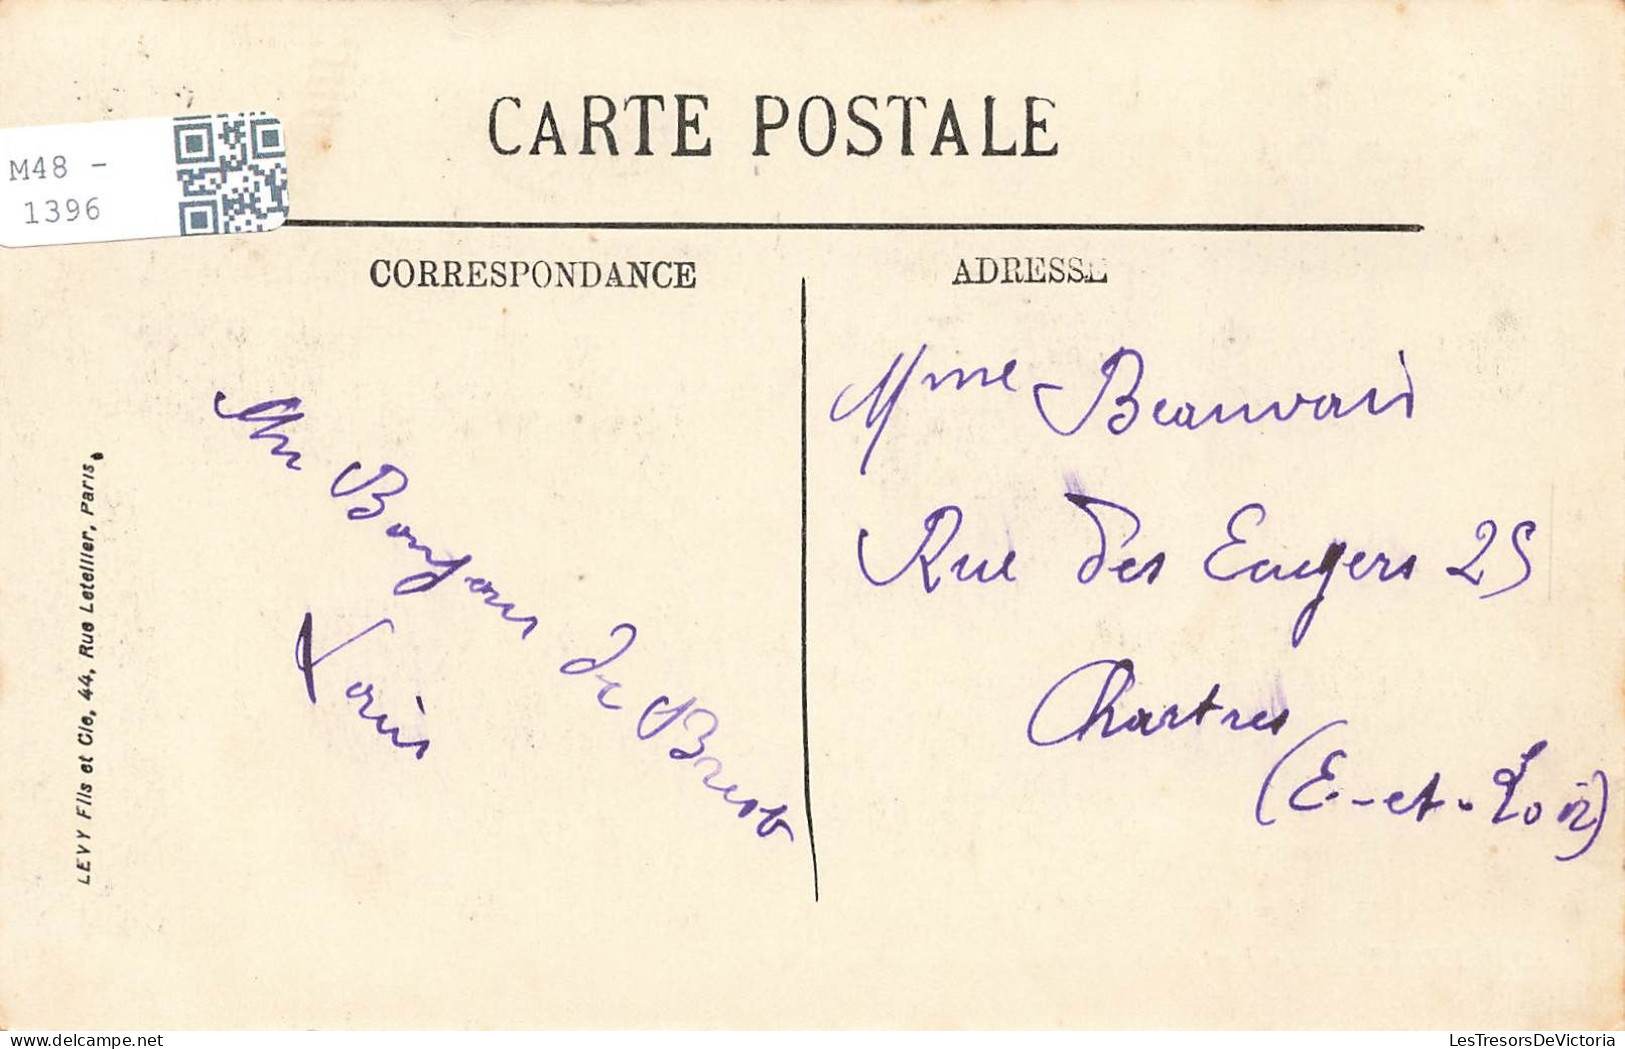 CARTE POSTALE
M48 -
1396
CORRESPONDANCE
ADRESSE
Un Bonjour de Brest
Louis
Mme Beauvais
Rue des 25
Chartres
(E.-et-Loir)
LEVY Fils et Cie, 44, Rue Letellier, Paris.
LesTresorsDeVictoria.com